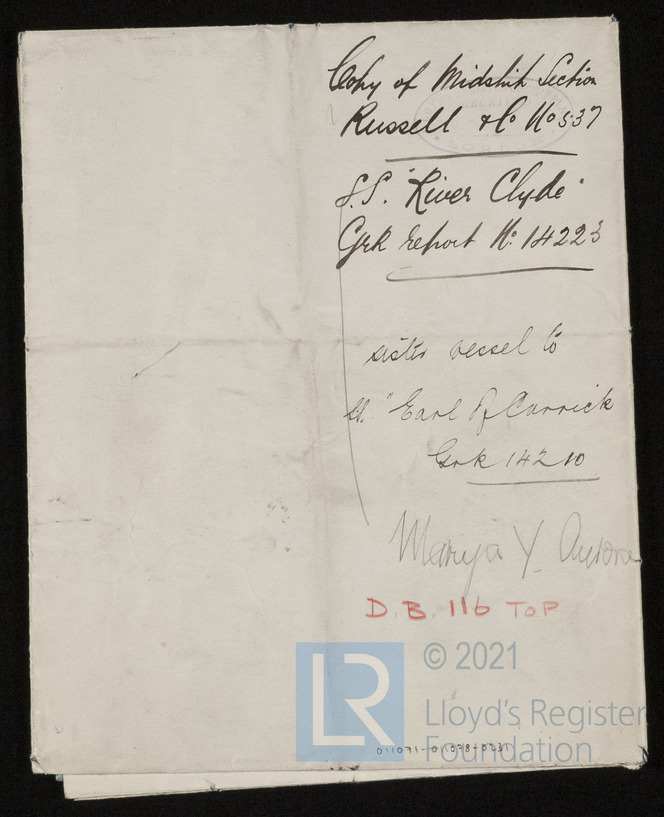 Copy of Midship Section
Russell & Co No 537
S.S. "River Clyde"
Grk report No. 14223
sister vessel to
ss. "Earl of Carrick
Grk 14210
Marija Y. Aurora
D.B. 116 TOP
LR
© 2021
Lloyd's Register
Foundation
011071-011078-0231